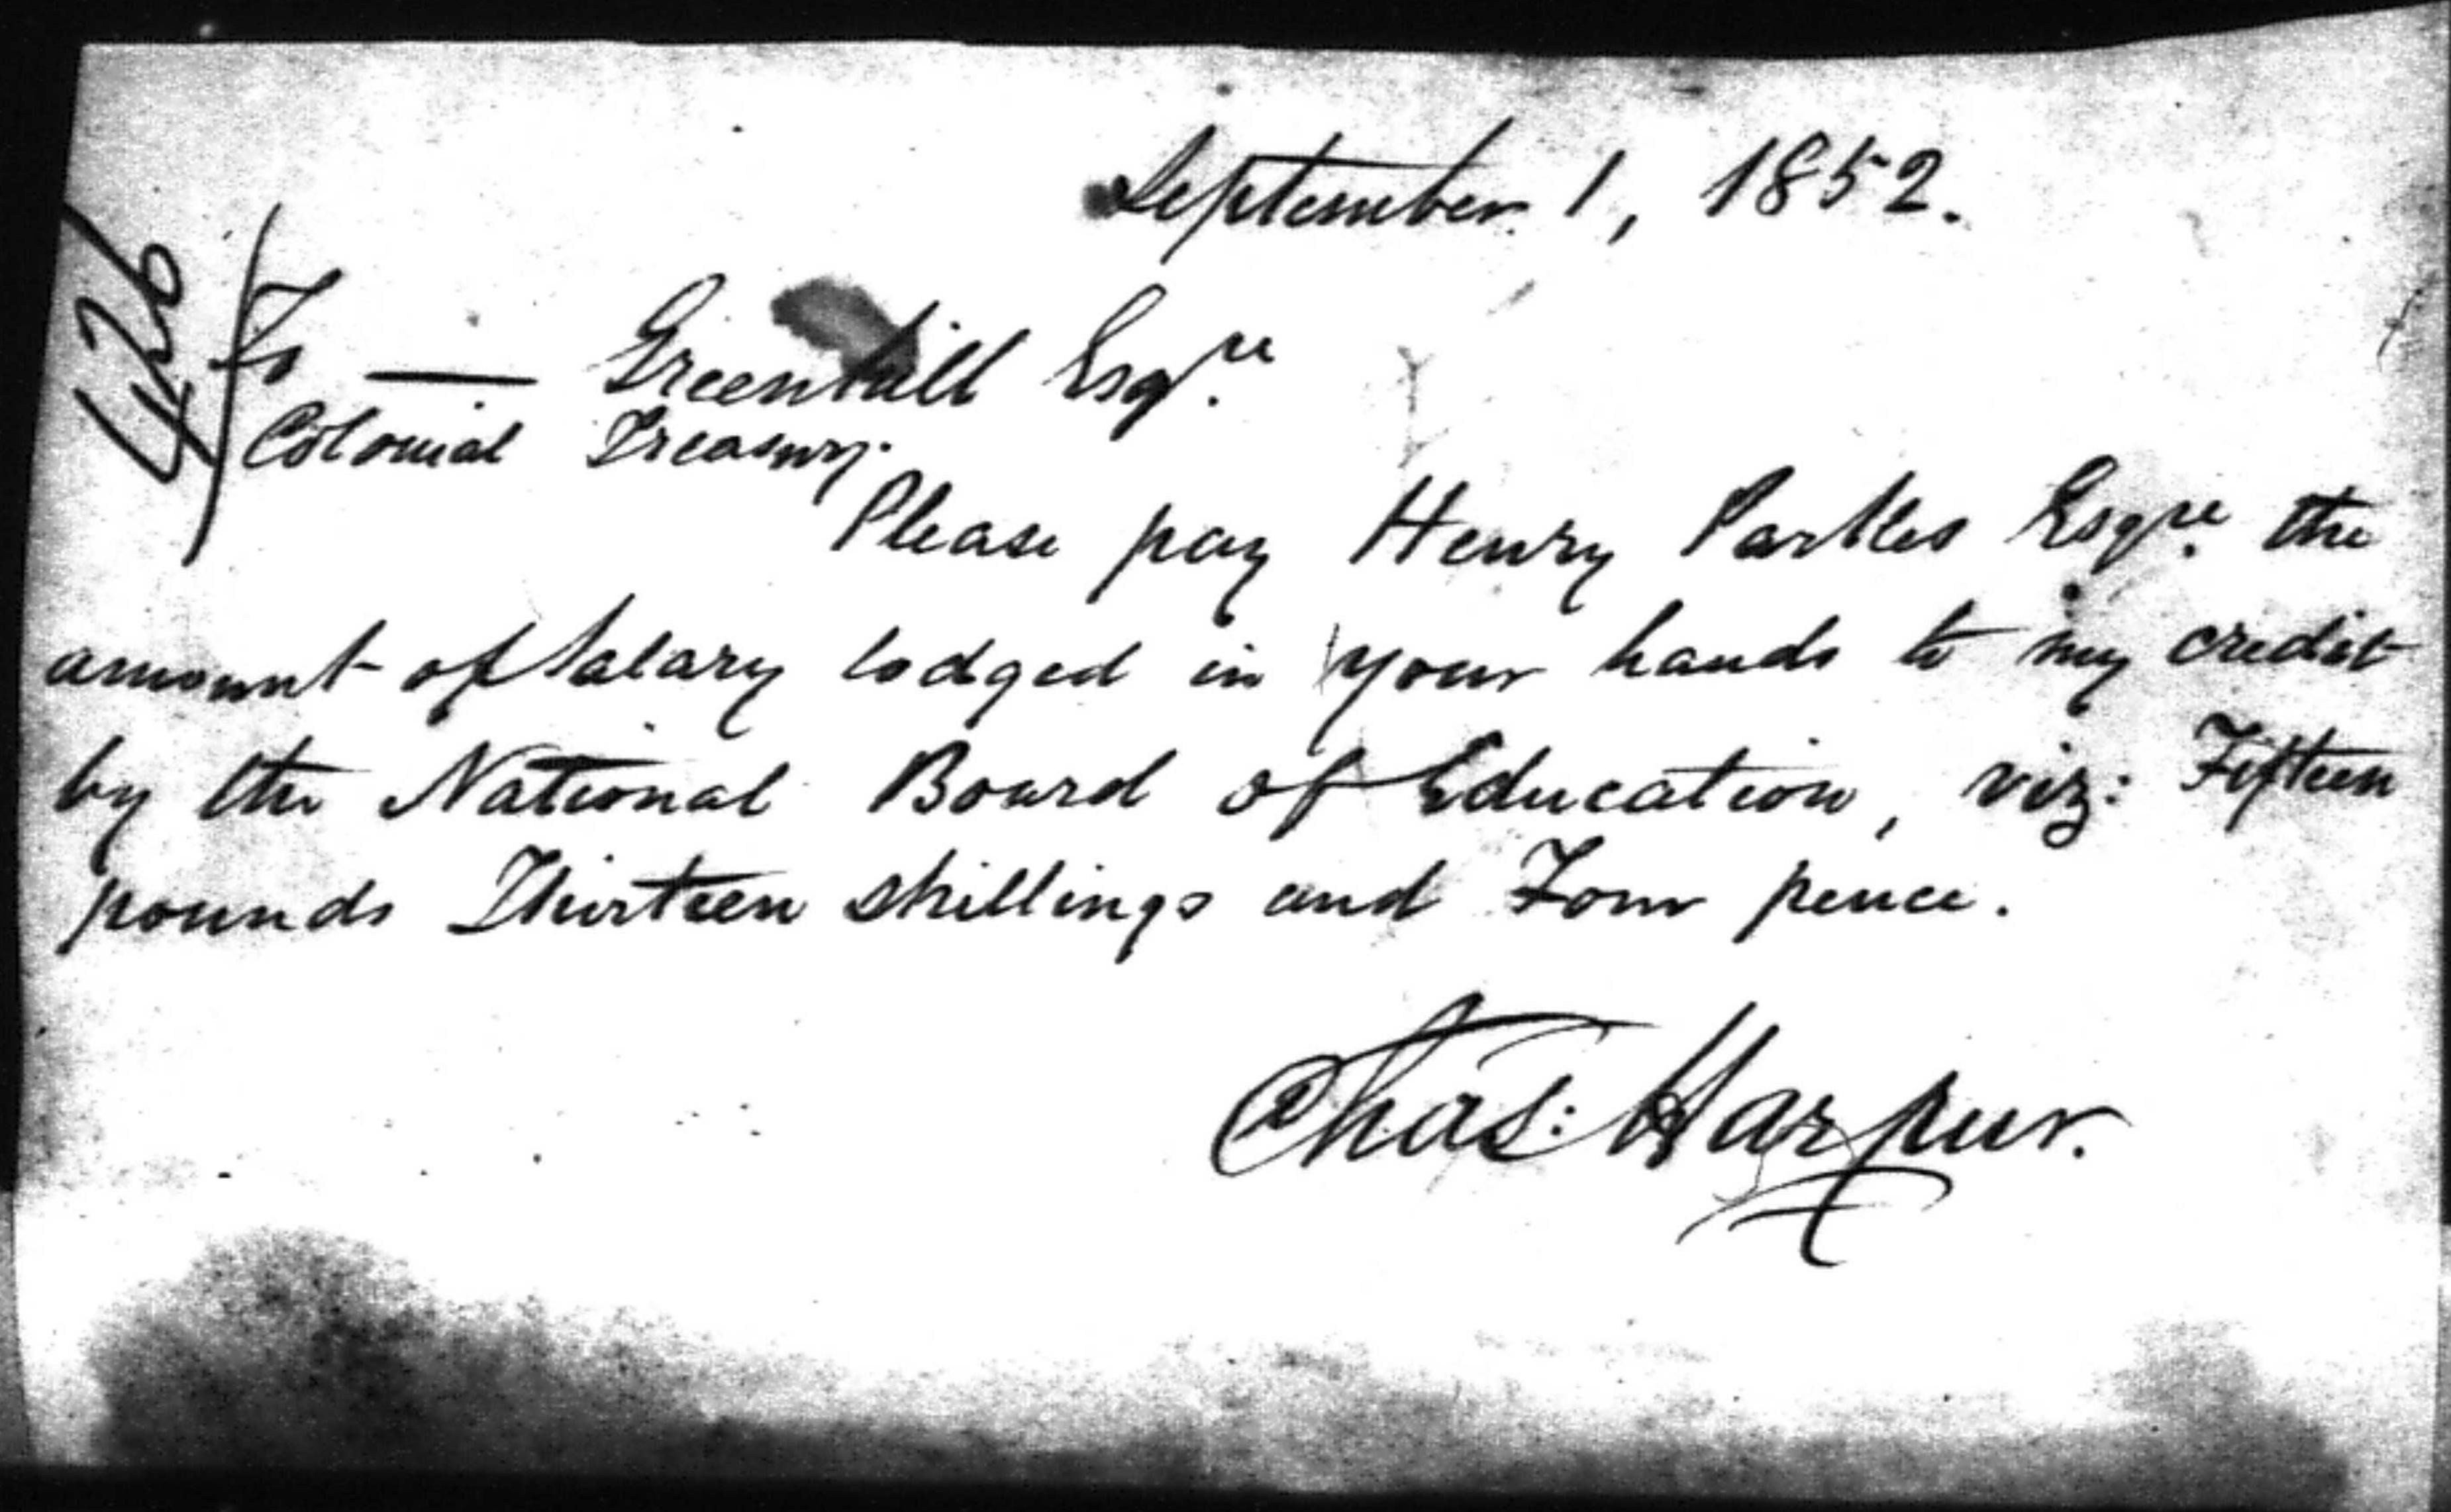 September 1, 1852.
426
To — Greenhill Esqre.
Colonial Treasury.
Please pay Henry Parkes Esqre. the
amount of Salary lodged in your hands to my credit
by the National Board of Education, viz: Fifteen
pounds Thirteen shillings and Four pence.
Chas: Harpur.